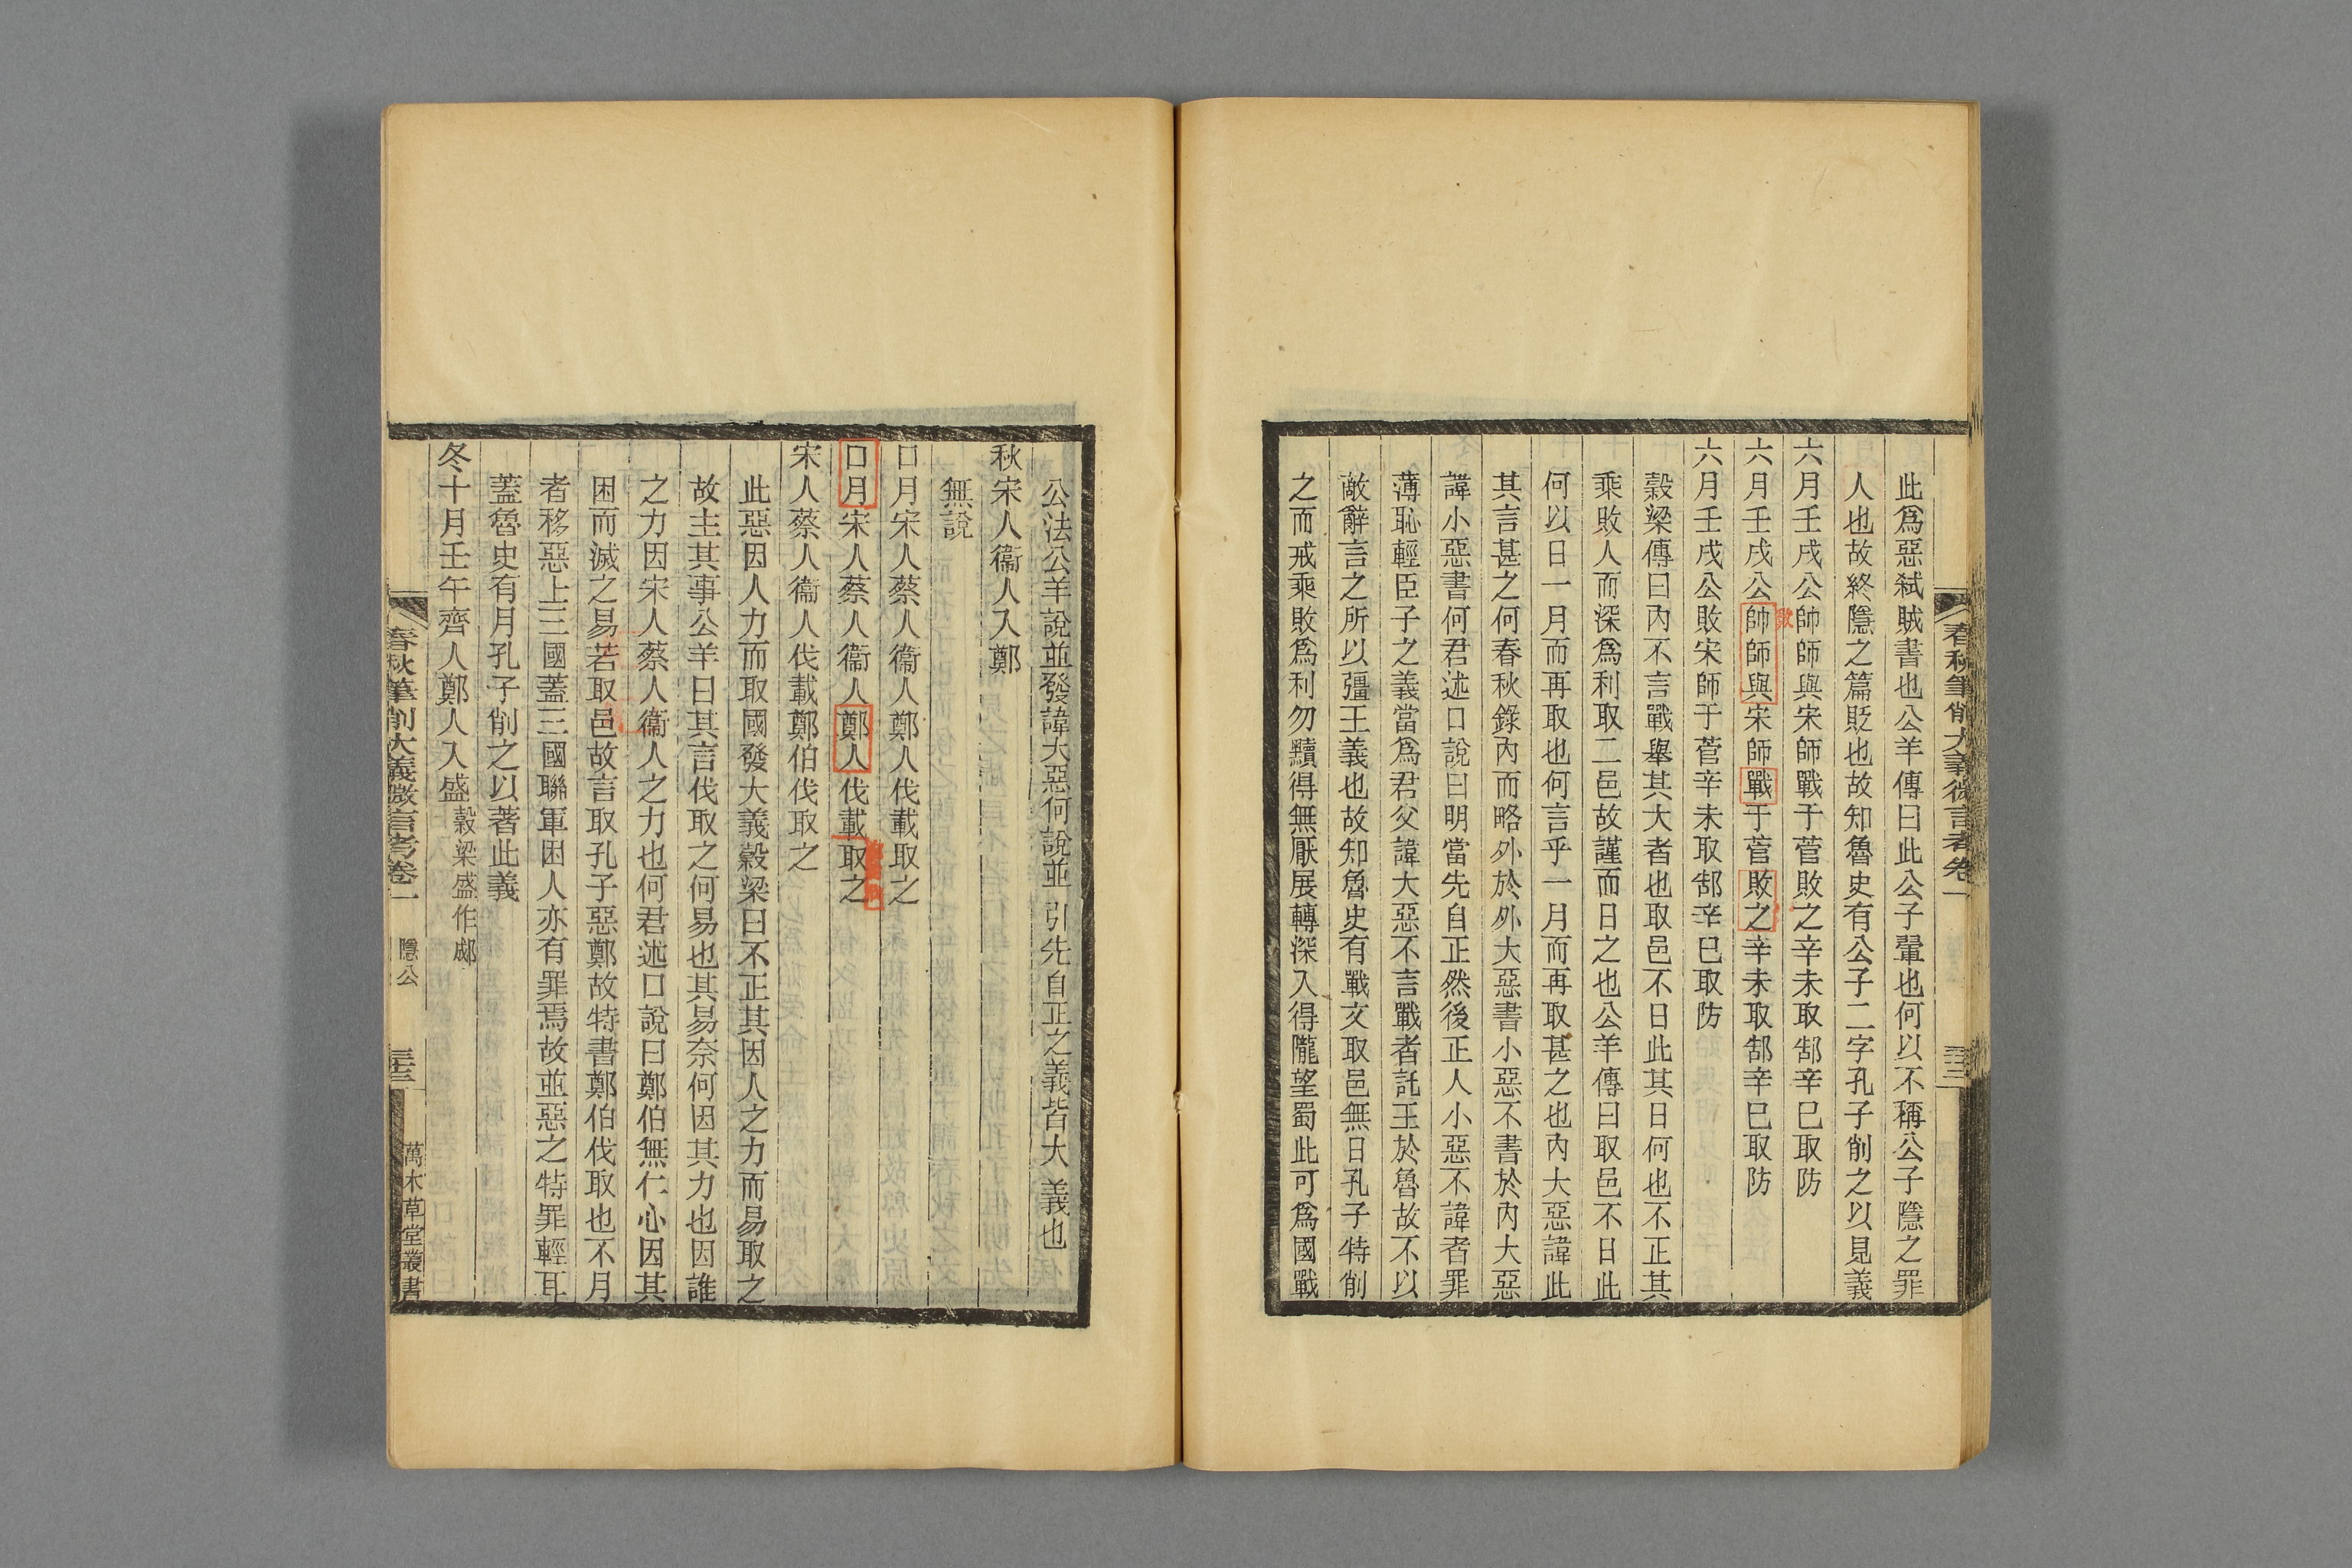 此爲惡弑賊書也公羊傳曰此公子翬也何以不稱公子隱之罪
人也故終隱之篇貶也故知魯史有公子二字孔子削之以見義
六月壬戌公帥師與宋師戰于菅敗之辛未取郜辛巳取防
六月壬戌公帥師與宋師戰于菅敗之辛未取郜辛巳取防
敗
六月壬戌公敗宋師于菅辛未取郜辛巳取防
穀梁傳曰內不言戰舉其大者也取邑不日此其日何也不正其
乘敗人而深爲利取二邑故謹而日之也公羊傳曰取邑不日此
何以日一月而再取也何言乎一月而再取甚之也內大惡諱此
其言甚之何春秋錄內而略外於外大惡書小惡不書於內大惡
諱小惡書何君述口說曰明當先自正然後正人小惡不諱者罪
薄恥輕臣子之義當爲君父諱大惡不言戰者託王於魯故不以
敵辭言之所以彊王義也故知魯史有戰文取邑無日孔子特削
之而戒乘敗爲利勿黷得無厭展轉深入得隴望蜀此可爲國戰
春秋筆削大義微言考卷一
三十三
公法公羊說並發諱大惡何說並引先自正之義皆大義也
秋宋人衞人入鄭
無說
口月宋人蔡人衞人鄭人伐載取之
口月宋人蔡人衞人鄭人伐載取之
宋人蔡人衞人伐載鄭伯伐取之
此惡因人力而取國發大義穀梁曰不正其因人之力而易取之
故主其事公羊曰其言伐取之何易也其易奈何因其力也因誰
之力因宋人蔡人衞人之力也何君述口說曰鄭伯無仁心因其
困而滅之易若取邑故言取孔子惡鄭故特書鄭伯伐取也不月
者移惡上三國蓋三國聯軍困人亦有罪焉故並惡之特罪輕耳
蓋魯史有月孔子削之以著此義
冬十月壬午齊人鄭人入盛穀梁盛作郕
春秋筆削大義微言考卷一
隱公
三十三
萬木草堂叢書